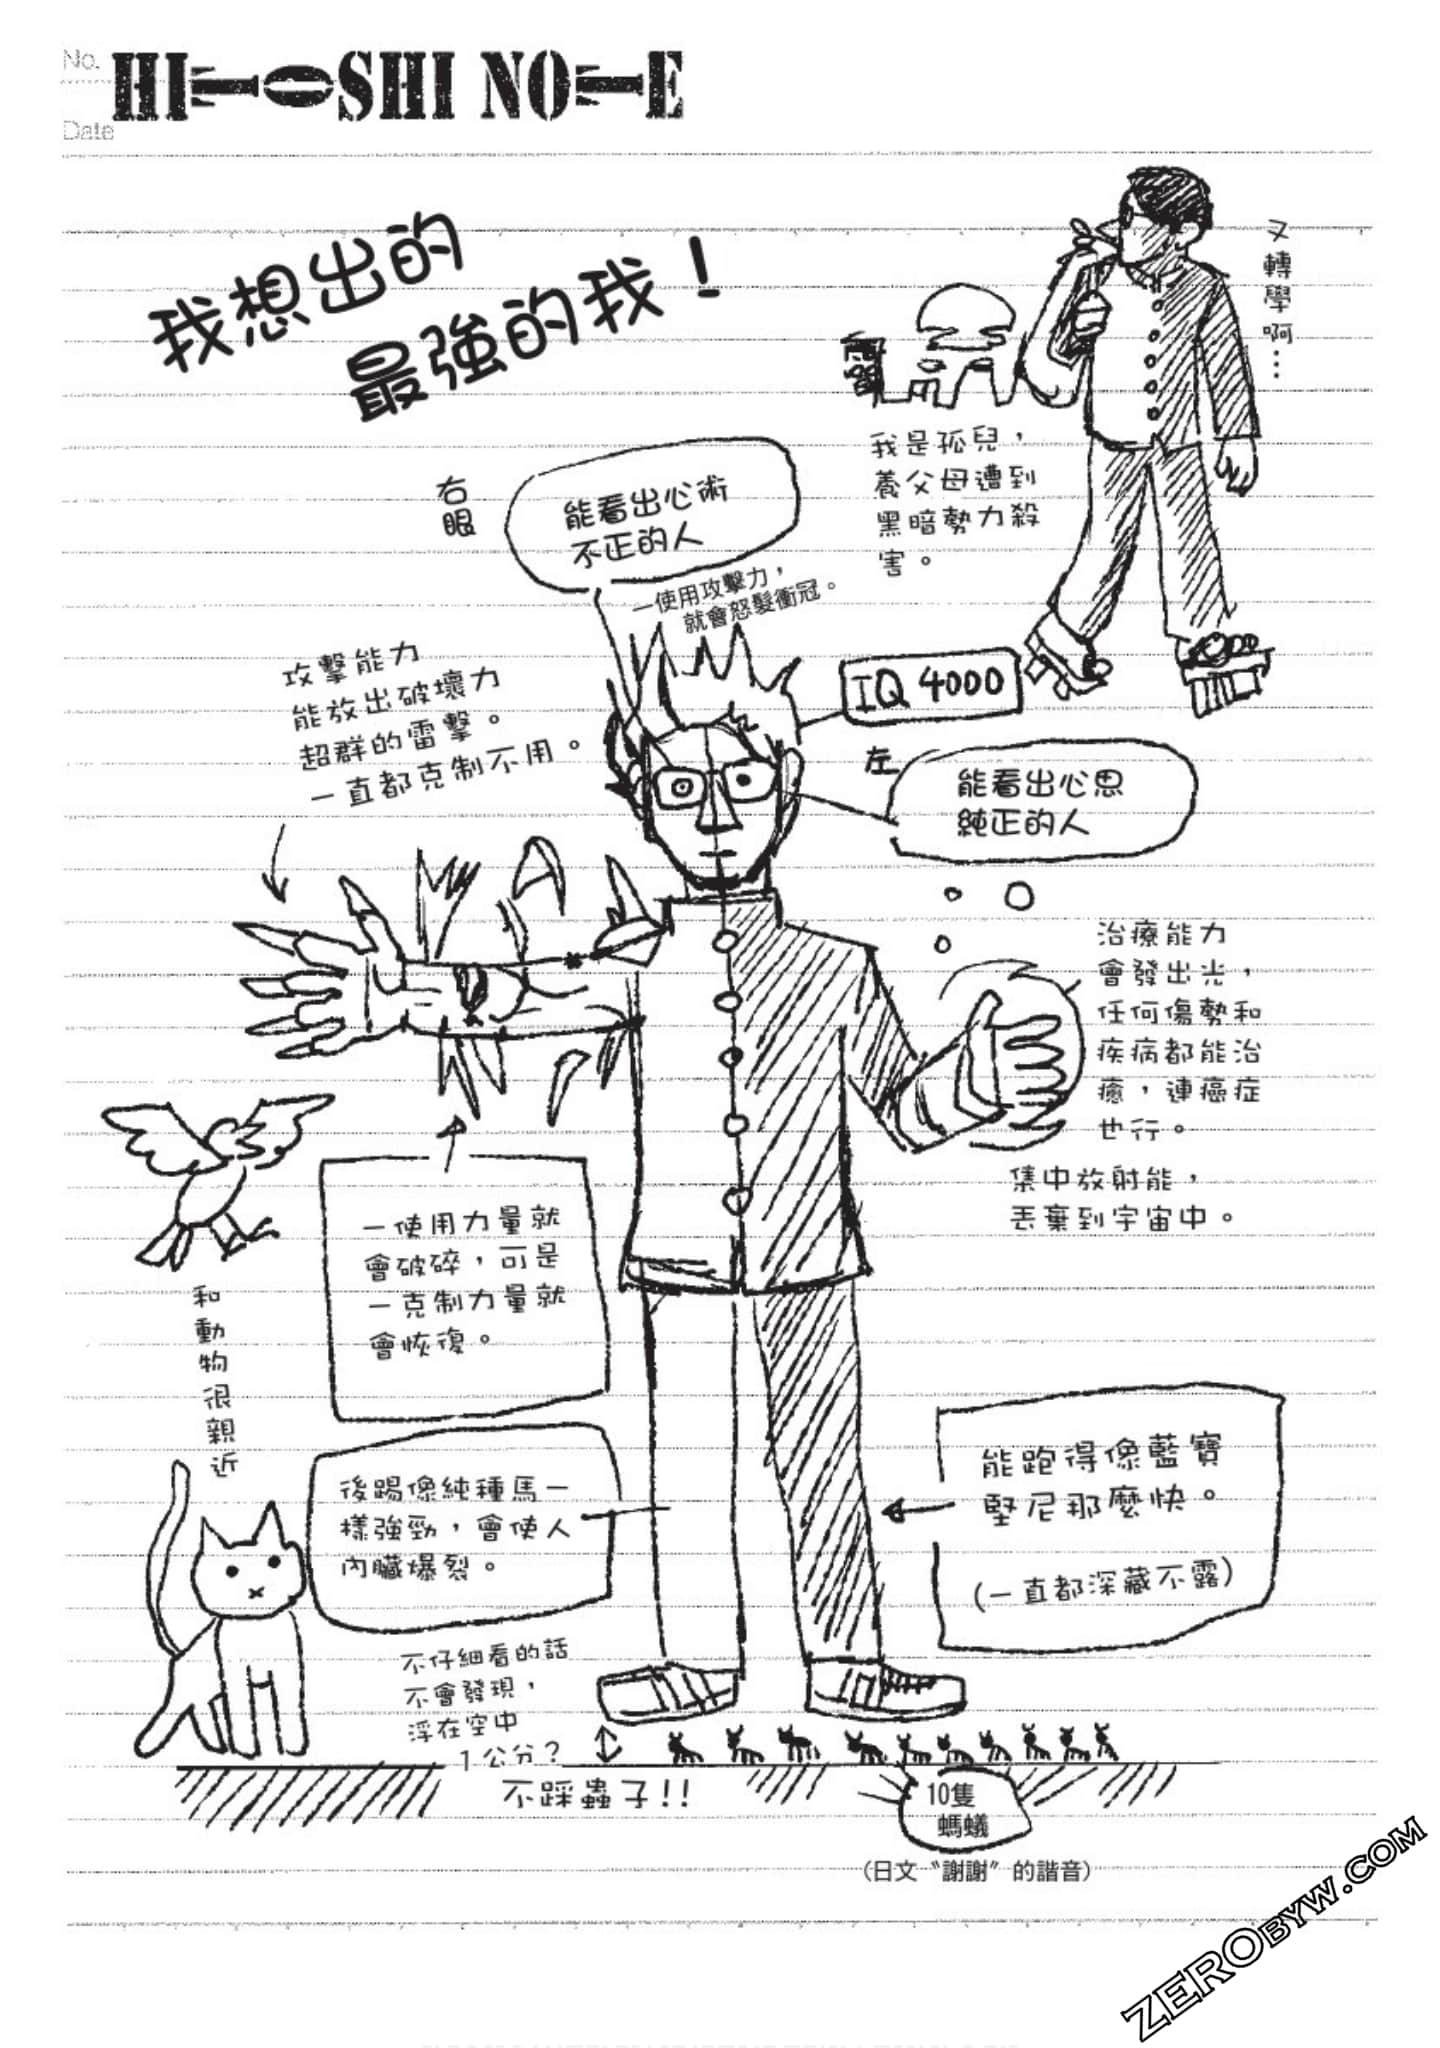 No.
HITOSHI NOTE
Date
我想出的
最強的我！
又轉學啊…
我是孤兒，
養父母遭到
黑暗勢力殺
害。
右眼
能看出心術
不正的人
一使用攻擊力，
就會怒髮衝冠。
攻擊能力
能放出破壞力
超群的雷擊。
一直都克制不用。
IQ 4000
左
能看出心思
純正的人
治療能力
會發出光，
任何傷勢和
疾病都能治
癒，連癌症
也行。
集中放射能，
丟棄到宇宙中。
一使用力量就
會破碎，可是
一克制力量就
會恢復。
和動物很親近
後踢像純種馬一
樣強勁，會使人
內臟爆裂。
能跑得像藍寶
堅尼那麼快。
(一直都深藏不露)
不仔細看的話
不會發現，
浮在空中
1公分？
不踩蟲子!!
10隻
螞蟻
(日文〝謝謝〞的諧音)
ZEROBYW.COM